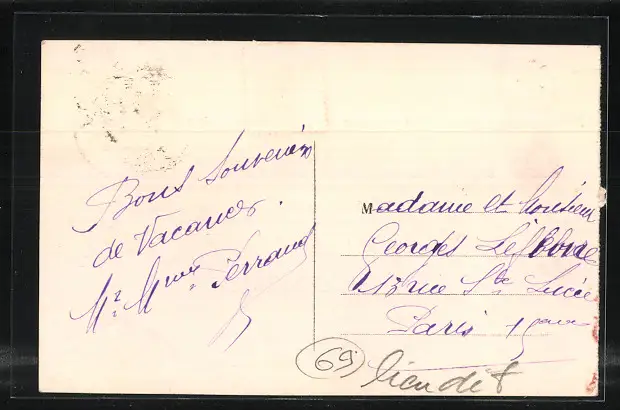 Bons Souvenirs
de Vacances.
Mr. Mme Perraud
Madame et Monsieur
Georges Lefebvre
13 rue Ste Lucie
Paris 15
69
lieu dit